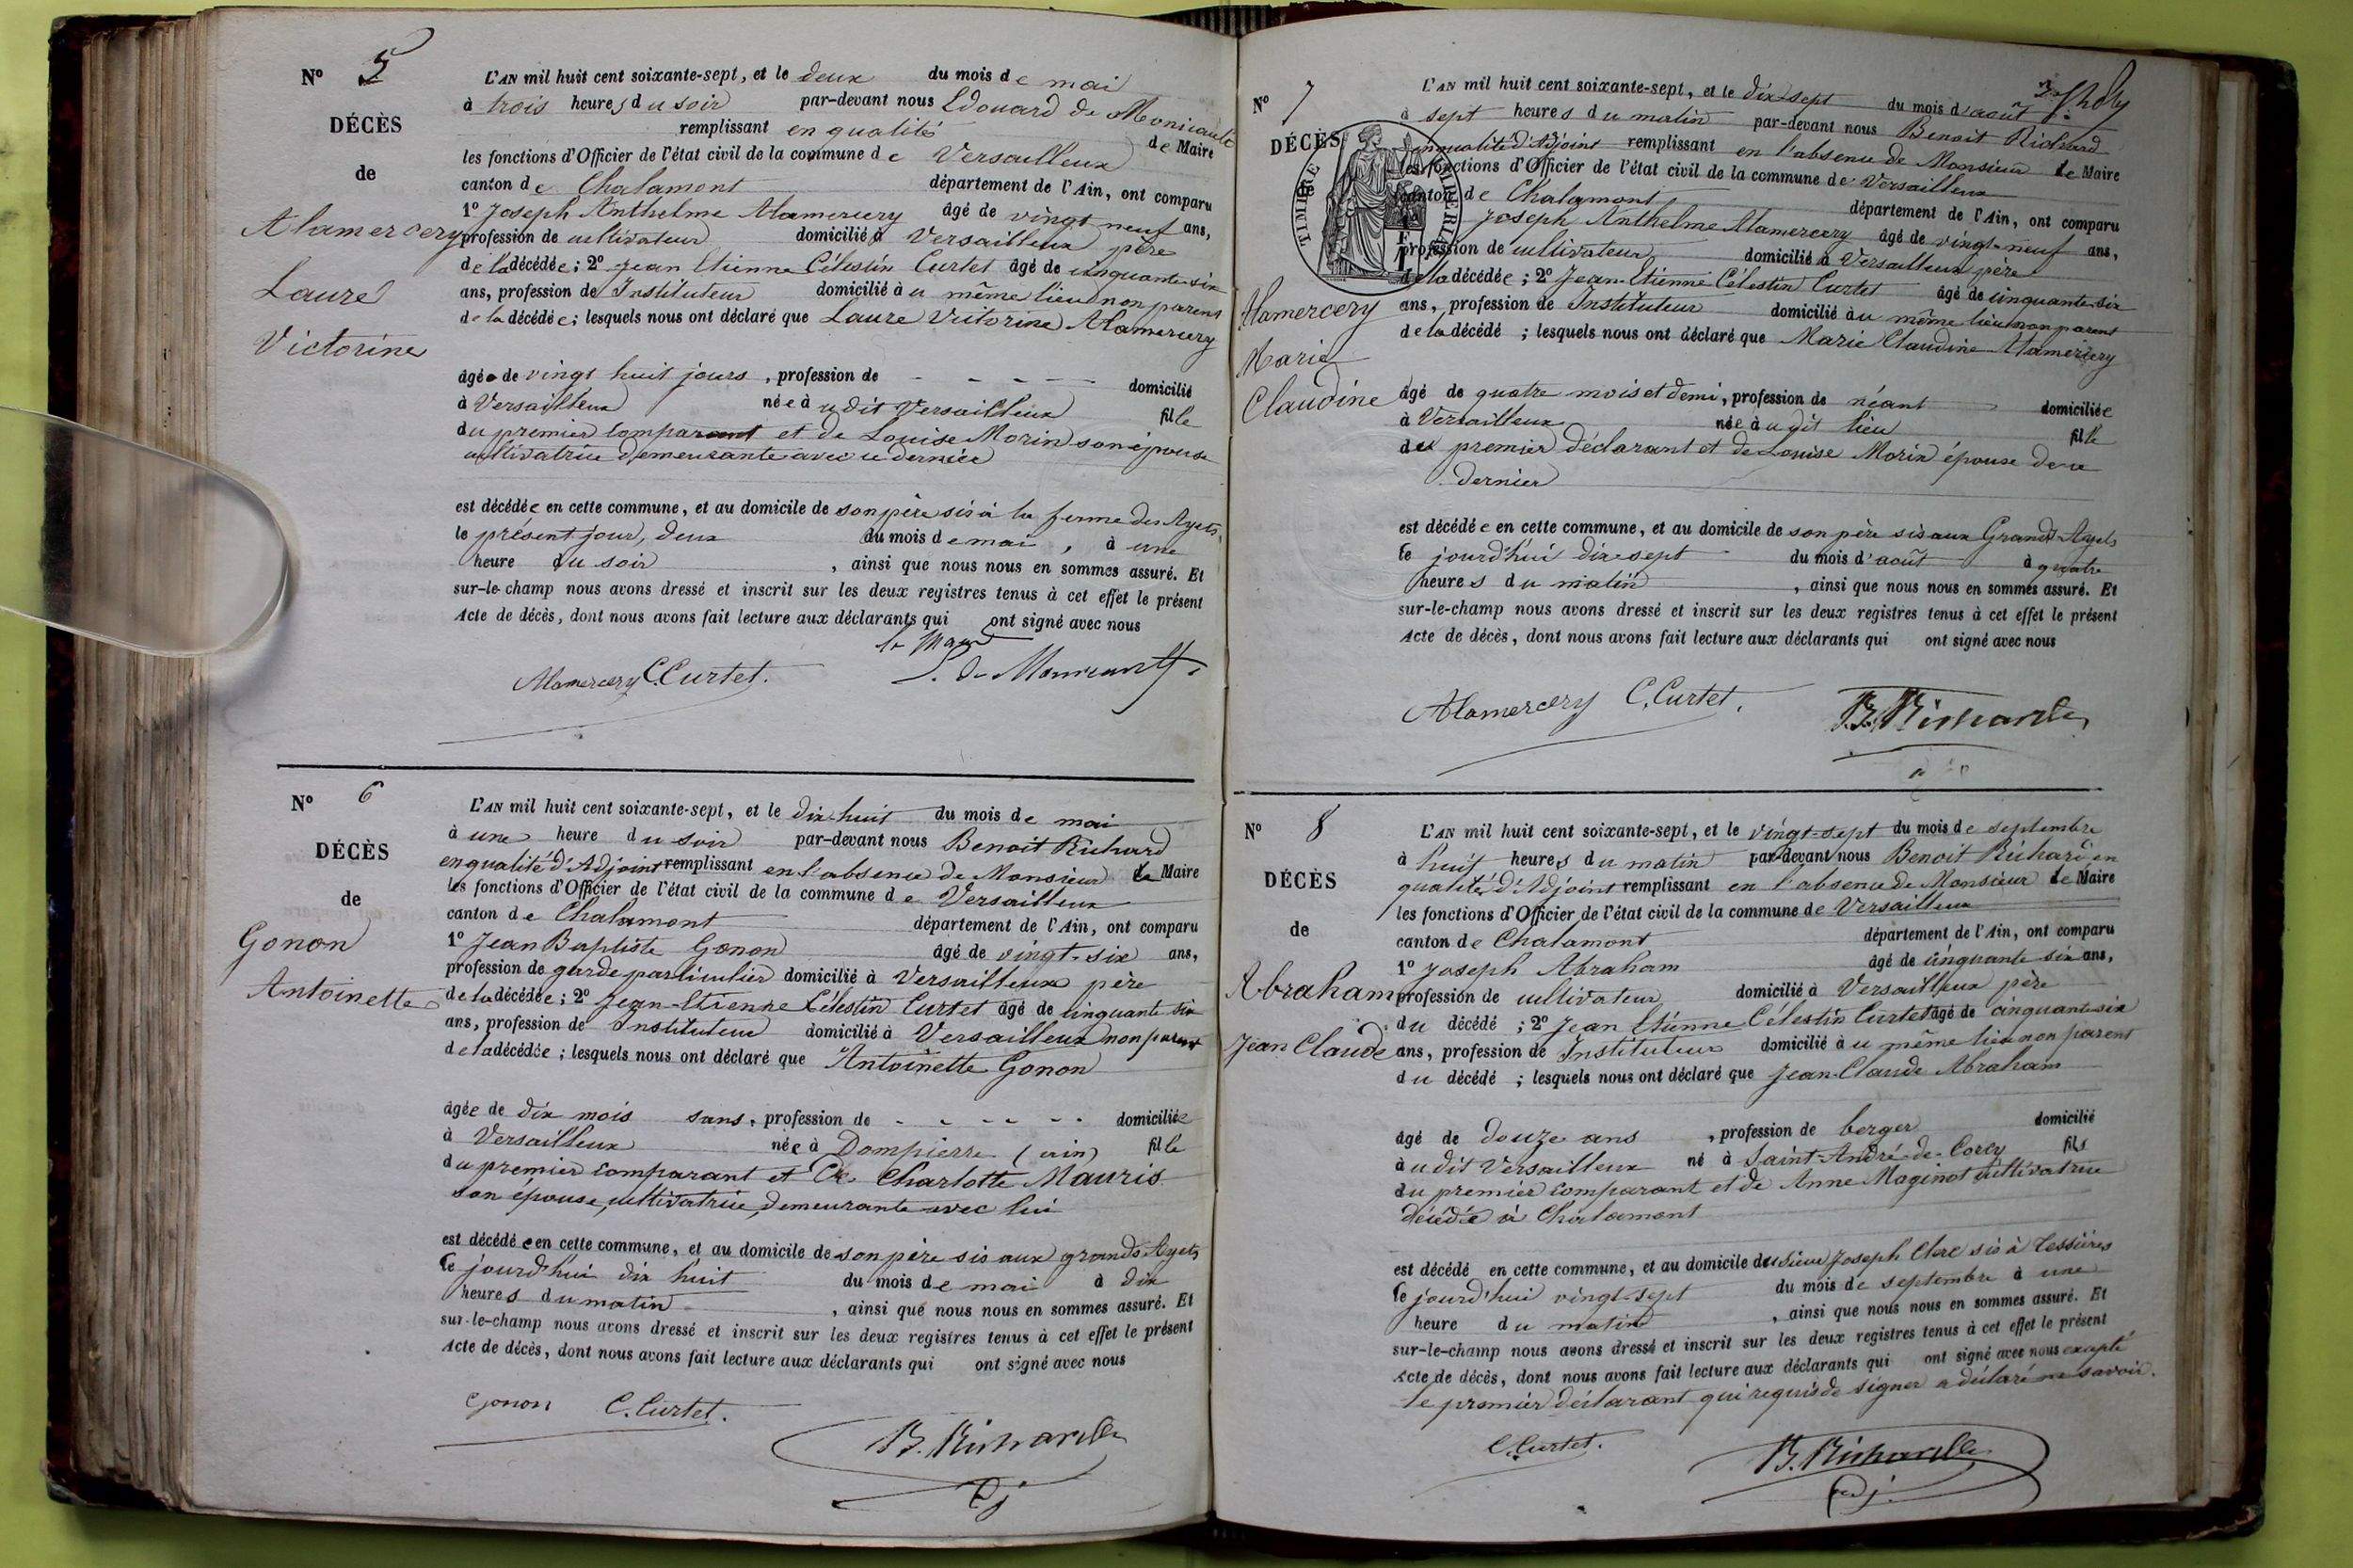 N° 5
DÉCÈS
de
Alamercery
Laure
Victorine
L'AN mil huit cent soixante-sept, et le deux du mois de mai
à trois heures du soir par-devant nous Edouard de Monicault
remplissant en qualité de Maire
les fonctions d'Officier de l'état civil de la commune de Versailleux
canton de Chalamont département de l'Ain, ont comparu
1° Joseph Anthelme Alamercery âgé de vingt neuf ans,
profession de cultivateur domicilié à Versailleux père
de la décédée; 2° Jean Etienne Célestin Curtet âgé de cinquante-six
ans, profession de Instituteur domicilié à u même lieu non parent
de la décédée; lesquels nous ont déclaré que Laure Victorine Alamercery
âgée de vingt huit jours, profession de - - - - domicilié
à Versailleux née à udit Versailleux fille
du premier comparant et de Louise Morin son épouse
cultivatrice demeurante avec ce dernier
est décédée en cette commune, et au domicile de son père sis à la ferme des Ayets
le présent jour, deux du mois de mai, à une
heure du soir, ainsi que nous nous en sommes assuré. Et
sur-le-champ nous avons dressé et inscrit sur les deux registres tenus à cet effet le présent
Acte de décès, dont nous avons fait lecture aux déclarants qui ont signé avec nous
le Maire
Alamercery C. Curtet. E. de Monicault
N° 6
DÉCÈS
de
Gonon
Antoinette
L'AN mil huit cent soixante-sept, et le dix-huit du mois de mai
à une heure du soir par-devant nous Benoit Richard
en qualité d'Adjoint remplissant en l'absence de Monsieur le Maire
les fonctions d'Officier de l'état civil de la commune de Versailleux
canton de Chalamont département de l'Ain, ont comparu
1° Jean Baptiste Gonon âgé de vingt-six ans,
profession de garde particulier domicilié à Versailleux père
de la décédée; 2° Jean-Etienne Célestin Curtet âgé de cinquante six
ans, profession de Instituteur domicilié à Versailleux non parent
de la décédée; lesquels nous ont déclaré que Antoinette Gonon
âgée de dix mois sans, profession de - - - - - domiciliée
à Versailleux née à Dompierre (ain) fille
du premier comparant et de Charlotte Mauris
son épouse, cultivatrice, demeurante avec lui
est décédée en cette commune, et au domicile de son père sis aux grands Ayets
le jourd'hui dix huit du mois de mai à dix
heures du matin, ainsi que nous nous en sommes assuré. Et
sur-le-champ nous avons dressé et inscrit sur les deux registres tenus à cet effet le présent
Acte de décès, dont nous avons fait lecture aux déclarants qui ont signé avec nous
Gonon C. Curtet.
B. Richard
Adj
N° 7
DÉCÈS
de
TIMBRE IMPÉRIAL
Alamercery
Marie
Claudine
L'AN mil huit cent soixante-sept, et le dix-sept du mois d'août
à sept heures du matin par-devant nous Benoit Richard
en qualité d'Adjoint remplissant en l'absence de Monsieur le Maire
les fonctions d'Officier de l'état civil de la commune de Versailleux
canton de Chalamont département de l'Ain, ont comparu
1° Joseph Anthelme Alamercery âgé de vingt-neuf ans,
profession de cultivateur domicilié à Versailleux père
de la décédée; 2° Jean-Etienne Célestin Curtet âgé de cinquante-six
ans, profession de Instituteur domicilié à u même lieu non parent
de la décédé; lesquels nous ont déclaré que Marie Claudine Alamercery
âgé de quatre mois et demi, profession de néant domiciliée
à Versailleux née à u dit lieu fille
du premier déclarant et de Louise Morin épouse de ce
dernier
est décédée en cette commune, et au domicile de son père sis aux Grands Ayets
le jourd'hui dix-sept du mois d'août à quatre
heures du matin, ainsi que nous nous en sommes assuré. Et
sur-le-champ nous avons dressé et inscrit sur les deux registres tenus à cet effet le présent
Acte de décès, dont nous avons fait lecture aux déclarants qui ont signé avec nous
Alamercery C. Curtet. B. Richard
N° 8
DÉCÈS
de
Abraham
Jean Claude
L'AN mil huit cent soixante-sept, et le vingt-sept du mois de septembre
à huit heures du matin par-devant nous Benoit Richard en
qualité d'Adjoint remplissant en l'absence de Monsieur le Maire
les fonctions d'Officier de l'état civil de la commune de Versailleux
canton de Chalamont département de l'Ain, ont comparu
1° Joseph Abraham âgé de cinquante six ans,
profession de cultivateur domicilié à Versailleux père
du décédé; 2° Jean Etienne Célestin Curtet âgé de cinquante-six
ans, profession de Instituteur domicilié à u même lieu non parent
du décédé; lesquels nous ont déclaré que Jean-Claude Abraham
âgé de douze ans, profession de berger domicilié
à udit Versailleux né à Saint-André-de-Corcy fils
du premier comparant et de Anne Maginot cultivatrice
décédée à Chalamont
est décédé en cette commune, et au domicile du sieur Joseph Clerc sis à
le jourd'hui vingt-sept du mois de septembre à une
heure du matin, ainsi que nous nous en sommes assuré. Et
sur-le-champ nous avons dressé et inscrit sur les deux registres tenus à cet effet le présent
Acte de décès, dont nous avons fait lecture aux déclarants qui ont signé avec nous excepté
le premier déclarant qui requis de signer a déclaré ne savoir.
C. Curtet. B. Richard
Adj.